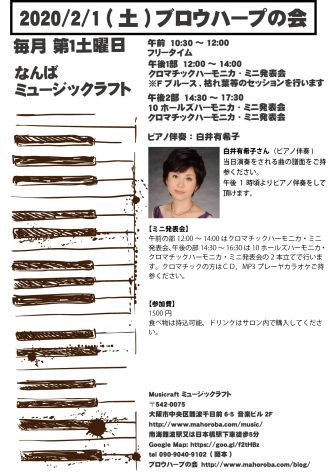 2020/2/1(土)ブロウハープの会
毎月 第1土曜日
なんば
ミュージックラフト
午前 10:30 ～ 12:00
フリータイム
午後1部 12:00 ～ 14:00
クロマチックハーモニカ・ミニ発表会
※Fブルース、枯れ葉等のセッションを行います
午後2部 14:30 ～ 17:30
10 ホールズハーモニカ・ミニ発表会
クロマチックハーモニカ・ミニ発表会
ピアノ伴奏：白井有希子
白井有希子さん（ピアノ伴奏）
当日演奏をされる曲の譜面をご持
参ください。
午後 1 時頃よりピアノ伴奏をして
頂けます。
【ミニ発表会】
午前の部 12:00 ～ 14:00 はクロマチックハーモニカ・ミニ
発表会、午後の部 14:30 ～ 16:30 は 10 ホールズハーモニカ・
クロマチックハーモニカ・ミニ発表会の 2 本立てで行いま
す。クロマチックの方はＣＤ、MP3 プレーヤカラオケご持
参ください。
【参加費】
1500 円
食べ物は持込可能、ドリンクはサロン内で購入してくださ
い。
Musicraft ミュージックラフト
〒542-0075
大阪市中央区難波千日前 6-5 音楽ビル 2F
http://www.mahoroba.com/music/
南海難波駅又は日本橋駅下車徒歩5分
Google Map: https://goo.gl/f2tHBz
tel 090-9040-9102 ( 岡本 )
ブロウハープの会 http://www.mahoroba.com/blog/